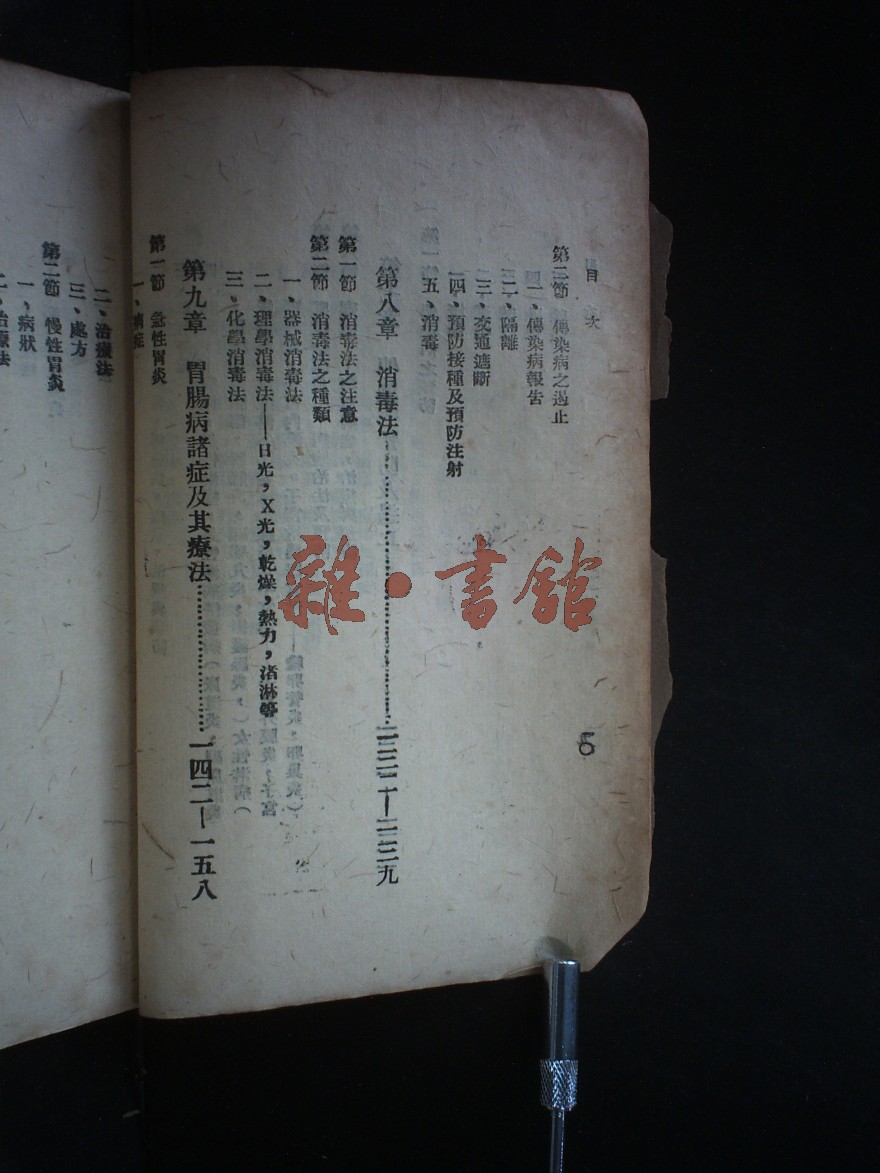 目次
傳染病之遏止
一、傳染病報告
二、隔離
三、交通遮斷
四、預防接種及預防注射
五、消毒
第八章 消毒法
第一節 消毒法之注意
第二節 消毒法之種類
一、器械消毒法
二、理學消毒法——日光，X光，乾燥，熱力，渚淋等
三、化學消毒法
第九章 胃腸病諸症及其療法……一四二—一五八
第一節 急性胃炎
一、病症
二、治療法
三、處方
第二節 慢性胃炎
一、病狀
二、治療法
6
雜·書館